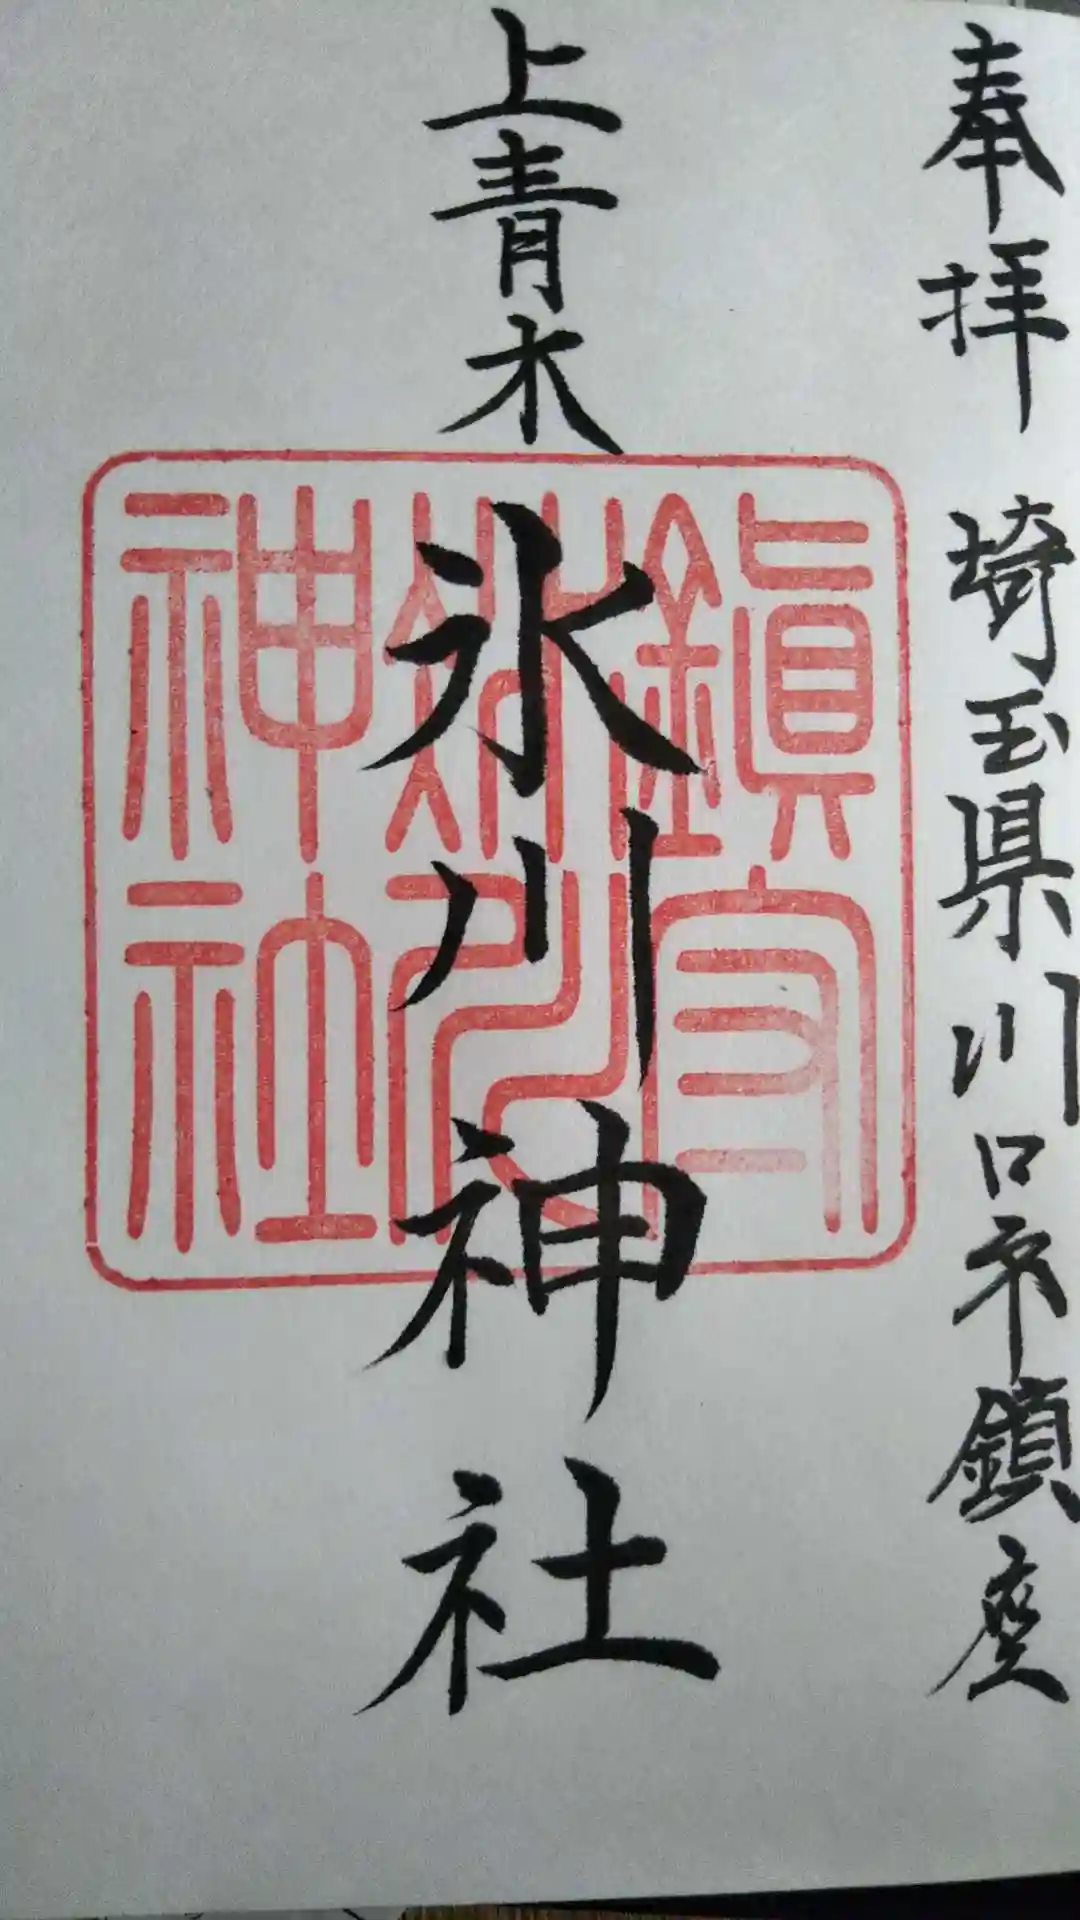 奉拝 埼玉県川口市鎮座
上青木
氷川神社
鎮守氷川神社